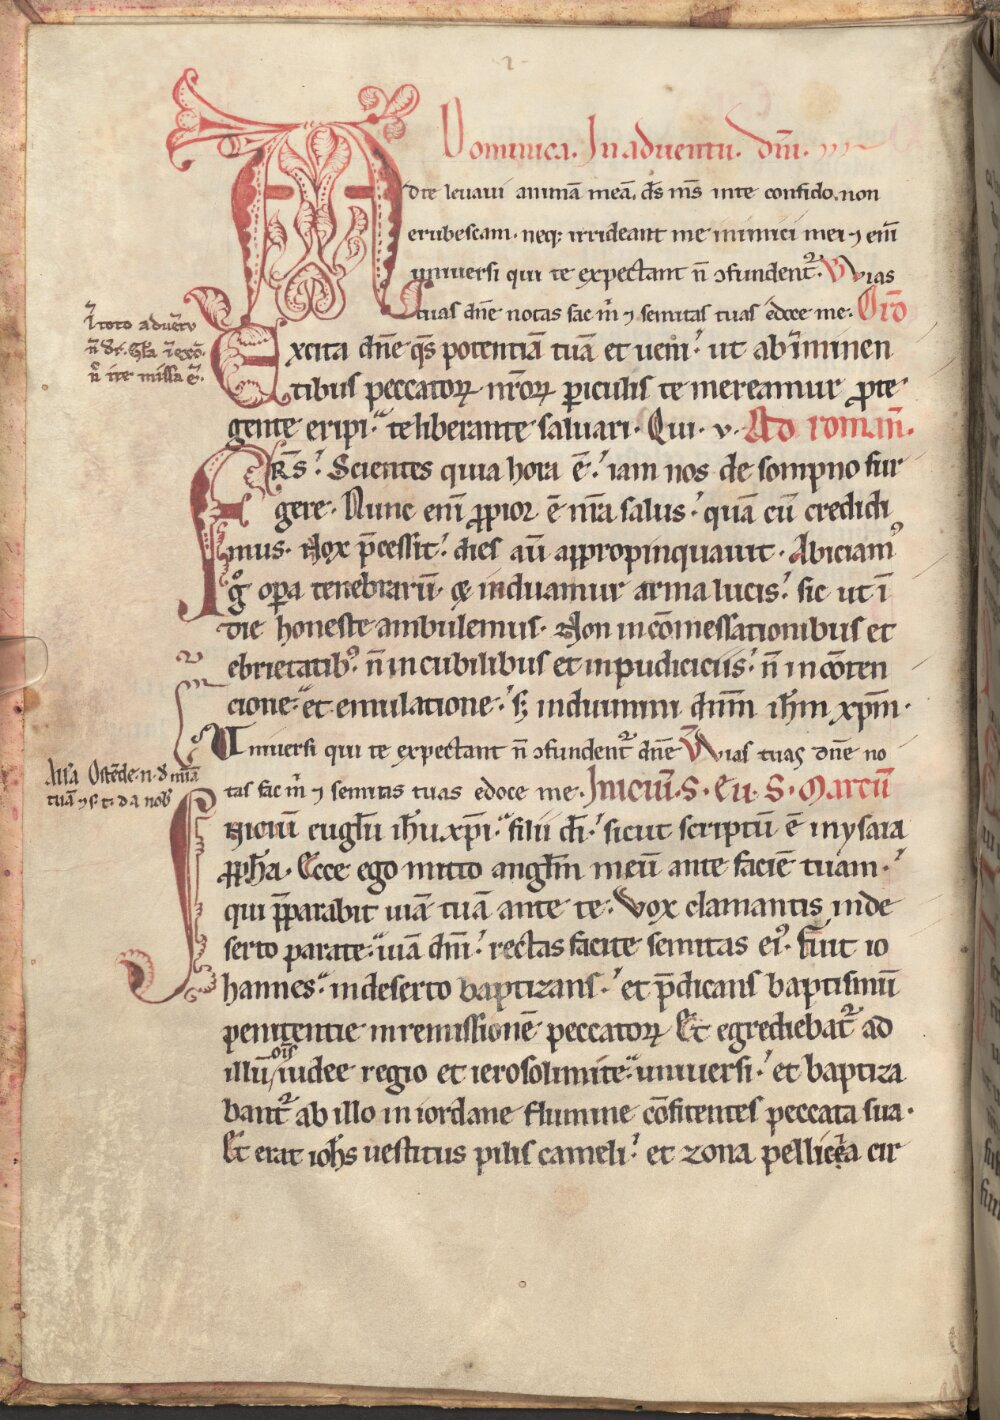 Dominica. In aduentu. dm̄i.
Ad te leuaui animā meā. ds̄ ms̄ inte confido. non
erubescam. neq; irrideant me inimici mei ⁊ enī
uniuersi qui te expectant n̄ ɔfundent᷑. V Vias
tuas dn̄e notas fac m̄ ⁊ semitas tuas edoce me. Orō
Excita dn̄e qs̄ potentiā tuā et ueni. ut ab īminen
tibus peccatoꝝ nr̄oꝝ periculis te mereamur prote
gente eripi. te liberante saluari. Qui. v. Ad roman̄.
FRS̄. Scientes quia hora ē. iam nos de sompno sur
gere. Nunc enī propior ē nr̄a salus. quā cū credidi
mus. Nox p̄cessit. dies aū appropinquauit. Abiciamꝰ
gͦ opa tenebrarū. & induamur arma lucis. sic ut ī
die honeste ambulemus. Non in cōmessationibus et
ebrietatibꝰ. n̄ in cubilibus et inpudiciciis. n̄ in cōten
cione. et emulatione. s; induimini dnm̄ ihm̄ xpm̄.
Vniuersi qui te expectant n̄ ɔfundent᷑ dn̄e V Vias tuas dn̄e no
tas fac m̄ ⁊ semitas tuas edoce me. Inicium̄. S. Eu. S. Marcum̄
Iniciū eugl̄ii ih̄u xp̄i. filii dī. sicut scriptū ē in ysaia
pph̄a. Ecce ego mitto angl̄m meū ante faciē tuam.
qui pp̄arabit uiā tuā ante te. Vox clamantis inde
serto parate. uiā dn̄i. rectas facite semitas eiꝰ. Fuit io
hannes. in deserto baptizans. et p̄dicans baptismū
penitentie in remissionē peccatoꝝ Et egrediebat᷑ ad
illū ois̄ iudee regio et ierosolimite. uniuersi. et baptiza
bant᷑ ab illo in iordane flumine cōfitentes peccata sua.
Et erat ioh̄s uestitus pilis cameli. et zona pellicea cir
ī toto aduētu
n̄ dr̄. Gl̄a ī excͦ.
Alla Ostēde. n. d. miā
tuā ⁊ s. t. da nobꝰ